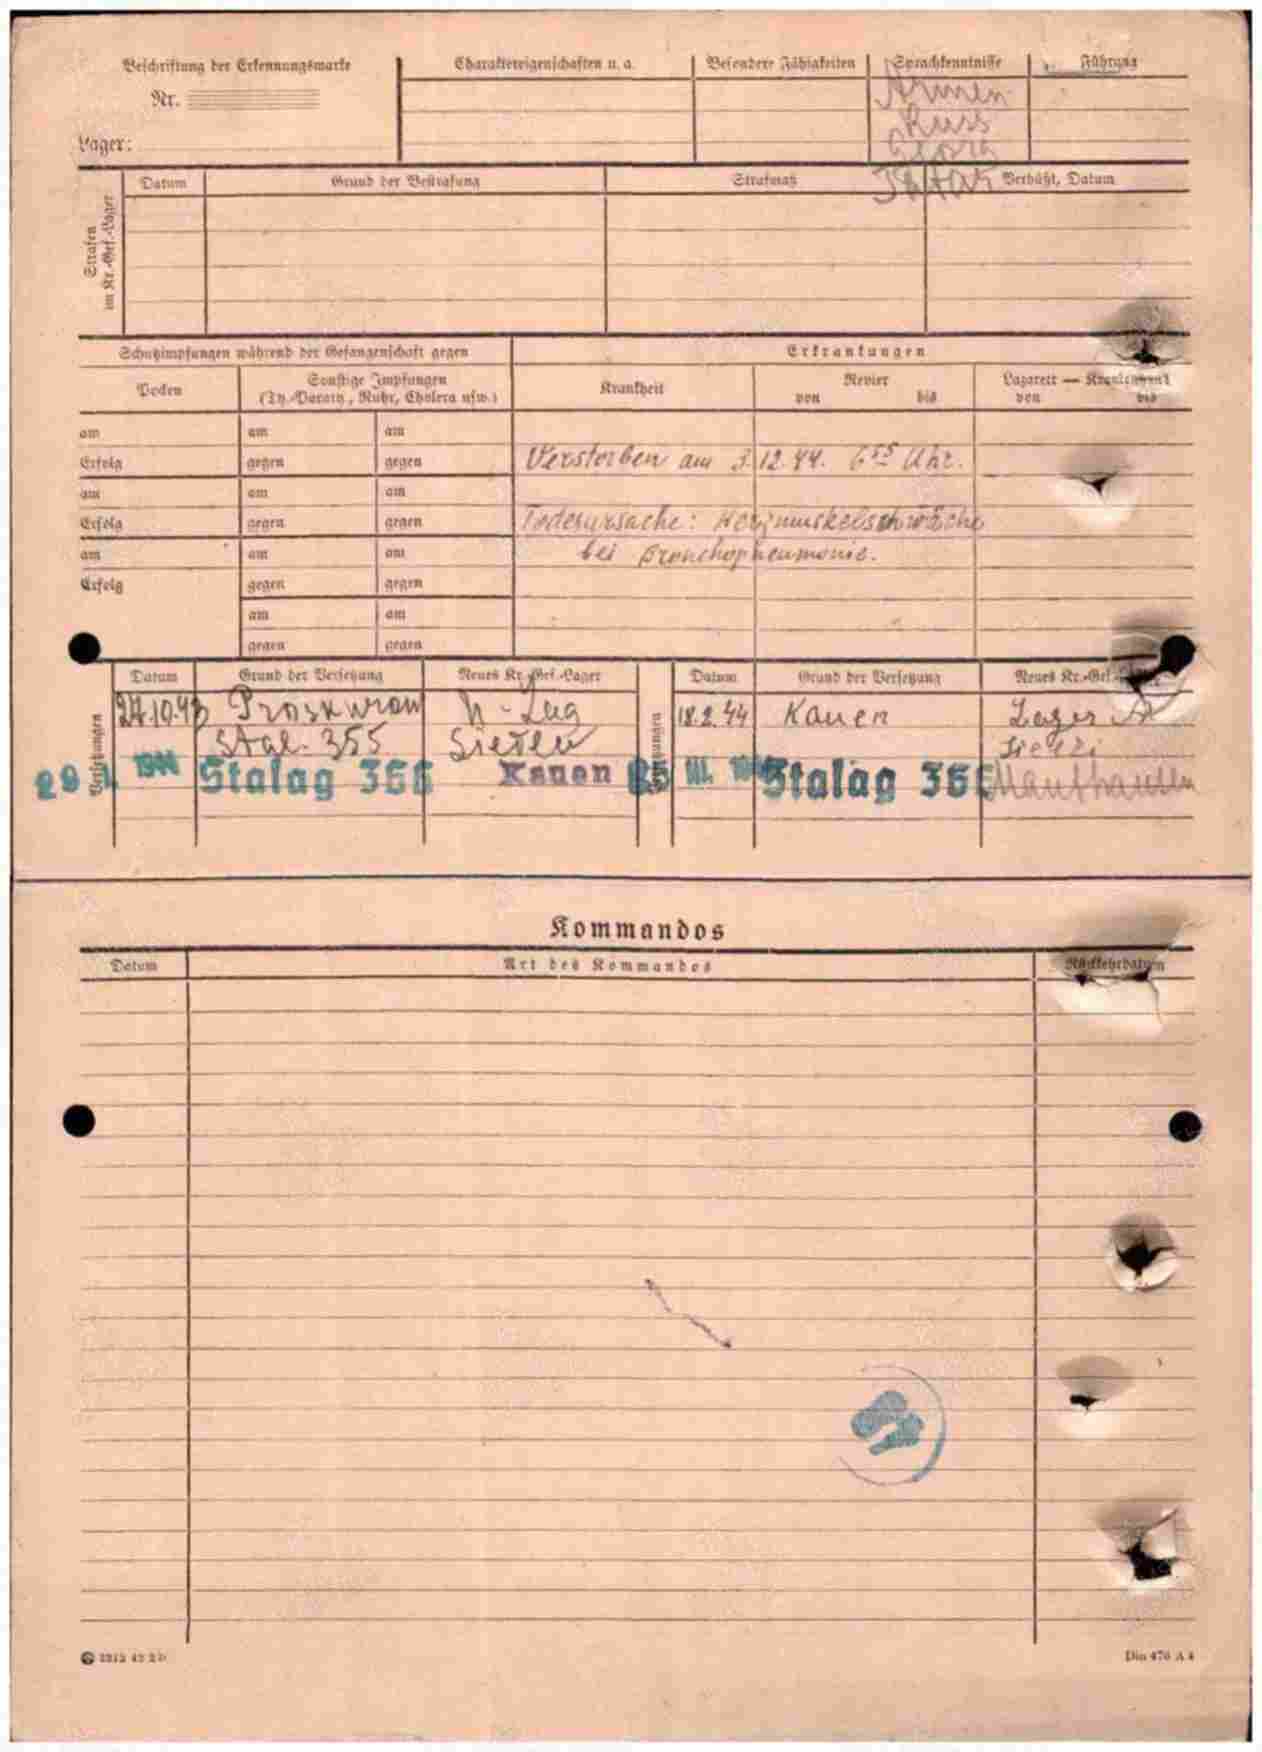 Beschriftung der Erkennungsmarke
Charaktereigenschaften u. a.
Besondere Fähigkeiten
Sprachkenntnisse
Führung
Nr.
Lager:
Armen
Russ
Georg
Tatar
Strafen
im Kr.-Gef.-Lager
Datum
Grund der Bestrafung
Strafmaß
Verbüßt, Datum
Schutzimpfungen während der Gefangenschaft gegen
Erkrankungen
Pocken
Sonstige Impfungen
(Ty.-Paraty., Ruhr, Cholera usw.)
Krankheit
Revier
von bis
Lazarett — Krankenhaus
von bis
am am am
Erfolg gegen gegen
Verstorben am 3.12.44. 6 55 Uhr.
am am am
Erfolg gegen gegen
Todesursache: Herzmuskelschwäche
am am am
bei Bronchopneumonie.
Erfolg gegen gegen
am am
gegen gegen
Versetzungen
Datum Grund der Versetzung Neues Kr.-Gef.-Lager
Versetzungen
Datum Grund der Versetzung Neues Kr.-Gef.-Lager
27.10.43 Proskurow
18.2.44 Kauen Lager
Stal. 355
1944 Stalag 366 Kauen
III. Stalag 366 Mauthausen
Kommandos
Datum Art des Kommandos Rückkehrdatum
Din 476 A 4